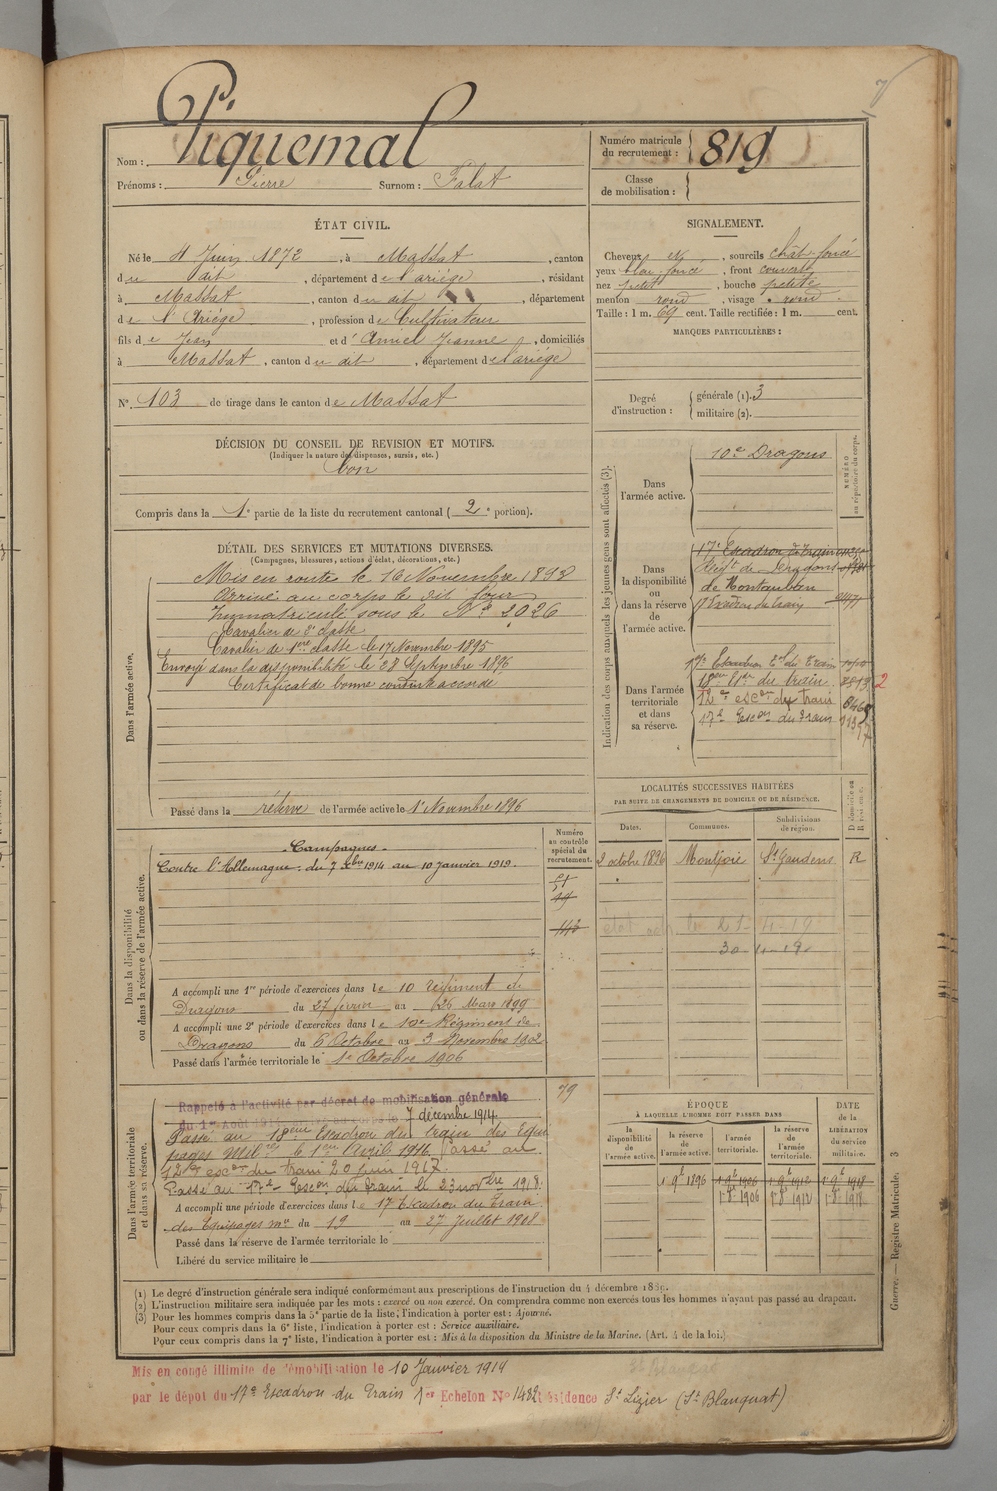 7
Piquemal
Nom :
Prénoms : Pierre Surnom : Falat
Numéro matricule du recrutement : 819
Classe de mobilisation :
ÉTAT CIVIL.
Né le 4 Juin 1872, à Massat, canton
du dit, département de l'ariège, résidant
à Massat, canton du dit, département
de l'Ariège, profession de Cultivateur
fils de Jean et d'Amiel Jeanne, domiciliés
à Massat, canton du dit, département de l'ariège
N° 103 de tirage dans le canton de Massat
DÉCISION DU CONSEIL DE REVISION ET MOTIFS.
(Indiquer la nature des dispenses, sursis, etc.)
bon
Compris dans la 1e partie de la liste du recrutement cantonal (2e portion).
SIGNALEMENT.
Cheveux et, sourcils chât. foncé
yeux bleu foncé, front couvert
nez petit, bouche petite
menton rond, visage rond.
Taille : 1 m. 69 cent. Taille rectifiée : 1 m. cent.
MARQUES PARTICULIÈRES :
Degré d'instruction : générale (1). 3
militaire (2).
Indication des corps auxquels les jeunes gens sont affectés (3).
NUMÉRO au répertoire du corps.
Dans l'armée active.
10e Dragons
Dans la disponibilité ou dans la réserve de l'armée active.
17e Escadron du train
Régt de Dragons
de Montauban
17 Escadron du train
Dans l'armée territoriale et dans sa réserve.
17e Escadron Eal du Train
18eme Eson du train 2
12e escon du train
17e Escon du Train
DÉTAIL DES SERVICES ET MUTATIONS DIVERSES.
(Campagnes, blessures, actions d'éclat, décorations, etc.)
Dans l'armée active.
Mis en route le 16 Novembre 1893
Arrivé au corps le dit jour
Immatriculé sous le N° 2026
Cavalier de 2e classe
Cavalier de 1ère classe le 17 Novembre 1895
Envoyé dans la disponibilité le 28 Septembre 1896
Certificat de bonne conduite accordé
Passé dans la réserve de l'armée active le 1er Novembre 1896
LOCALITÉS SUCCESSIVES HABITÉES
PAR SUITE DE CHANGEMENTS DE DOMICILE OU DE RÉSIDENCE.
Dates. Communes. Subdivisions de région. Domicile ou Résidence.
2 octobre 1896 Montjoie St Gaudens R
Dans la disponibilité ou dans la réserve de l'armée active.
Numéro au contrôle spécial du recrutement.
Campagnes.
Contre l'Allemagne : du 7 Xbre 1914 au 10 janvier 1919.
A accompli une 1re période d'exercices dans le 10 régiment de
Dragons du 27 février au 26 Mars 1899
A accompli une 2e période d'exercices dans le 10e Régiment de
Dragons du 6 Octobre au 3 Novembre 1902
Passé dans l'armée territoriale le 1er Octobre 1906
79
Dans l'armée territoriale et dans sa réserve.
Rappelé à l'activité par décret de mobilisation générale
7 décembre 1914
Passé au 18ème Escadron du train des Equi
pages Milres le 1er Avril 1916. Passé au
12e escon du train 20 juin 1917.
Passé au 17e Escon du train le 23 novbre 1918.
A accompli une période d'exercices dans le 17 Escadron du Train
des Equipages mre du 19 au 27 Juillet 1908
Passé dans la réserve de l'armée territoriale le
Libéré du service militaire le
ÉPOQUE
À LAQUELLE L'HOMME DOIT PASSER DANS
la disponibilité de l'armée active. la réserve de l'armée active. l'armée territoriale. la réserve de l'armée territoriale.
DATE de la LIBÉRATION du service militaire.
1 9b 1896 1 9b 1906 1 9b 1912 1 9b 1918
1 8b 1906 1 8b 1912 1 8b 1918
(1) Le degré d'instruction générale sera indiqué conformément aux prescriptions de l'instruction du 4 décembre 1889.
(2) L'instruction militaire sera indiquée par les mots : exercé ou non exercé. On comprendra comme non exercés tous les hommes n'ayant pas passé au drapeau.
(3) Pour les hommes compris dans la 5e partie de la liste, l'indication à porter est : Ajourné.
Pour ceux compris dans la 6e liste, l'indication à porter est : Service auxiliaire.
Pour ceux compris dans la 7e liste, l'indication à porter est : Mis à la disposition du Ministre de la Marine. (Art. 4 de la loi.)
Guerre. — Registre Matricule. 3
Mis en congé illimité de démobilisation le 10 Janvier 1919
par le dépôt du 17e Escadron du Train 1er Echelon N° 1482 Résidence St Lizier (St Blanquat)